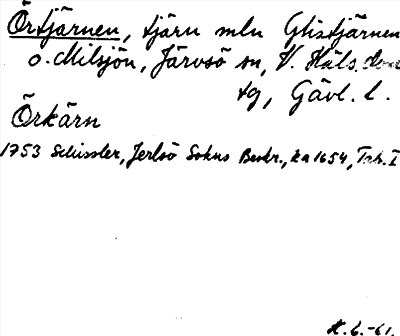 Örtjärnen, tjärn mln Glistjärnen
o. Milsjön, Järvsö sn, V. Häls. doms
tg, Gävl. l.
Örkärn
1753 Schissler, Jerlsö Sokns Beskr., ka 1654, Tab. I
H. G.-61.